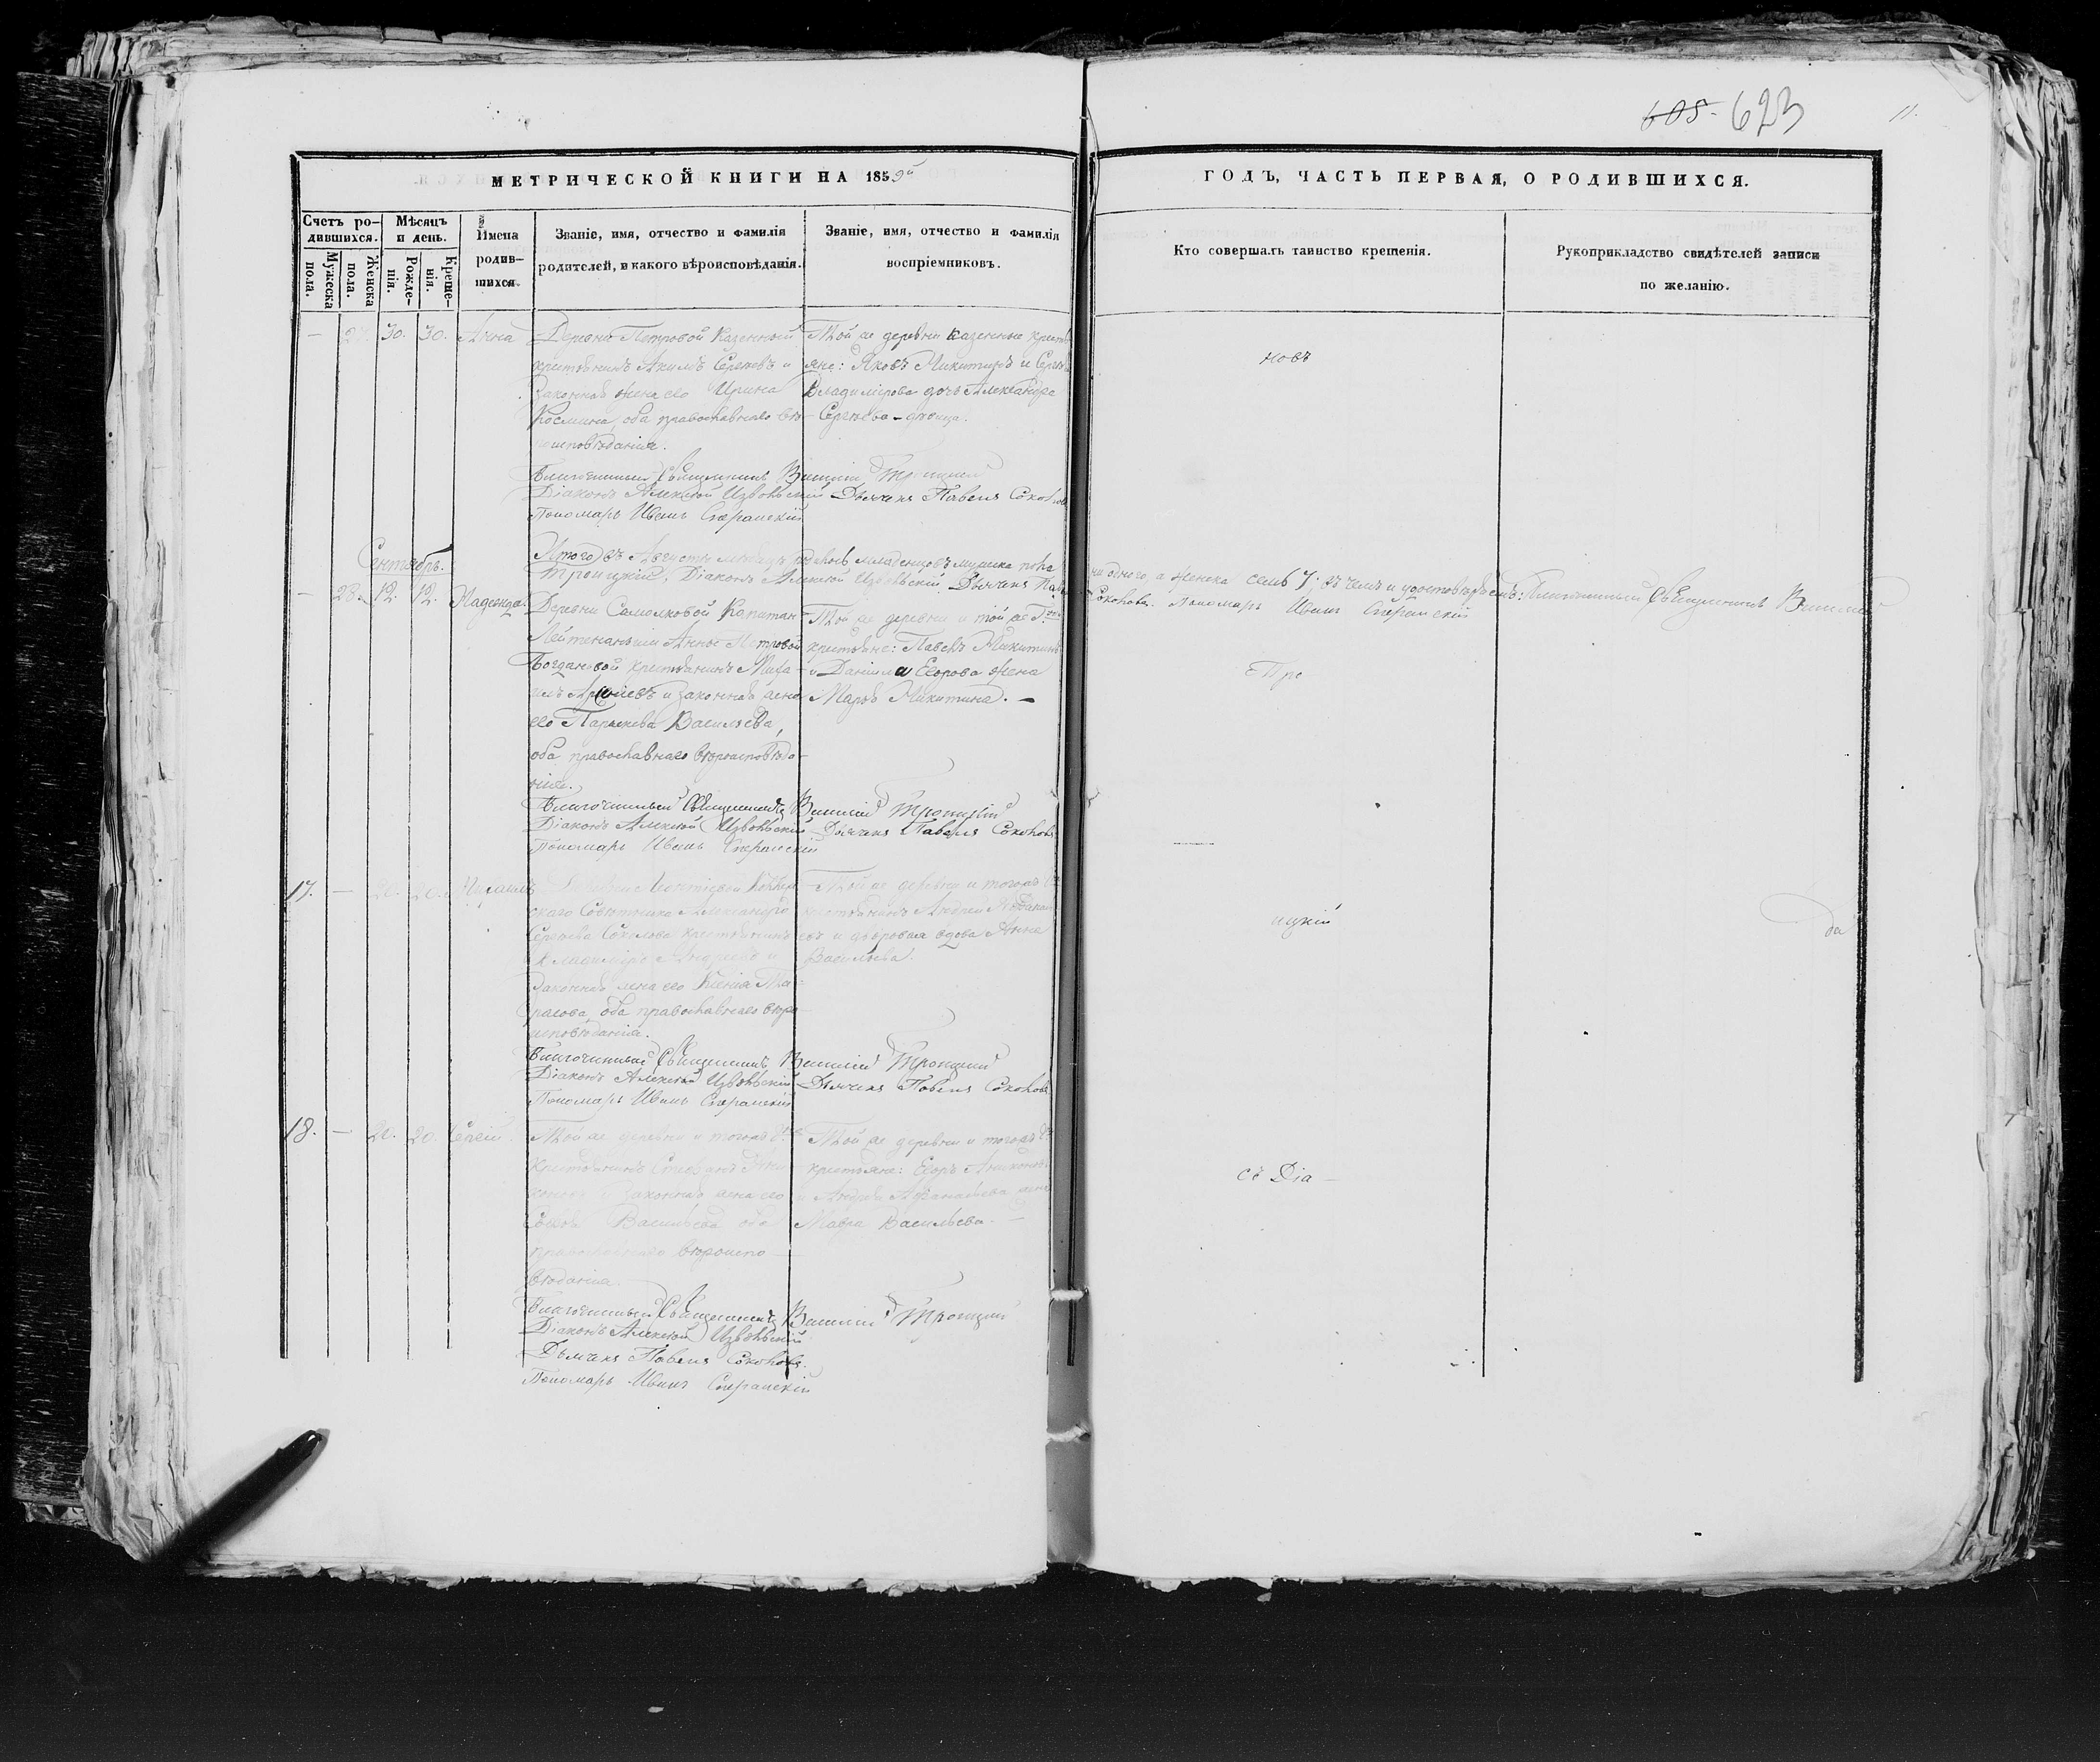 605. 623 11.
МЕТРИЧЕСКОЙ КНИГИ НА 1859й
ГОДЪ, ЧАСТЬ ПЕРВАЯ, О РОДИВШИХСЯ.
Счетъ родившихся.
Мужеска пола.
Женска пола.
Мѣсяцъ и день.
Рожденія.
Крещенія.
Имена родившихся.
Званіе, имя, отчество и фамилія
родителей, и какого вѣроисповѣданія.
Званіе, имя, отчество и фамилія
воспріемниковъ.
Кто совершалъ таинство крещенія.
Рукоприкладство свидѣтелей записи
по желанію.
— 27. 30. 30. Анна
Деревни Петровой Казенный
крестьянинъ Акимъ Сергѣевъ и
законная жена его Ирина
Космина, оба православнаго вѣ-
роисповѣданія.
Той же деревни казенные кресть
яне: Яковъ Никитинъ и Сергѣя
Владимірова дочь Александра
Сергѣева - дѣвица.
новъ
Благочинный Священникъ Василій Троицкій
Діаконъ Алексѣй Извольскій Дьячекъ Павелъ Соколовъ
Пономарь Иванъ Сперанскій
Итого въ Августѣ мѣсяцѣ родилось младенцовъ мужска пола
ни одного, а женска семь 7. въ чемъ и удостовѣряемъ: Благочинный Священникъ Василій
Троицкій, Діаконъ Алексѣй Извольскій Дьячекъ Павелъ
Соколовъ. Пономарь Иванъ Сперанскій
Сентябрь.
— 28. 12. 12. Надежда.
Деревни Самолковой Капитан-
Лейтенантши Анны Петровой
Богдановой крестьянинъ Миха-
илъ и законная жена
его Параскева Васильева,
оба православнаго вѣроисповѣда-
нія.
Той же деревни и той же Г.жи
крестьяне: Павелъ Никитинъ
и Даніила Егорова жена
Марѳа Никитина. —
Благочинный Священникъ Василій Троицкій
Діаконъ Алексѣй Извольскій Дьячекъ Павелъ Соколовъ
Пономарь Иванъ Сперанскій
17. — 20. 20. Михаилъ
Деревни Леонтіевой
скаго Совѣтника Александра
Сергѣева Соколова крестьянинъ
Владиміръ Андреевъ и
законная жена его Ксенія
оба православнаго вѣро-
исповѣданія.
Той же деревни и тогожъ Г.
крестьянинъ Андрей
и дворовая вдова Анна
Васильева.
ицкій
да
Благочинный Священникъ Василій Троицкій
Діаконъ Алексѣй Извольскій Дьячекъ Павелъ Соколовъ
Пономарь Иванъ Сперанскій
18. — 20. 20. Сергій.
Той же деревни и тогожъ Г.
крестьянинъ
законная жена его
Васильева оба
православнаго вѣроиспо-
вѣданія.
Той же деревни и тогожъ Г.
крестьяне: Егоръ
и Андрея Аѳанасьева жена
Мавра Васильева. —
съ Діа —
Благочинный Священникъ Василій Троицкій
Діаконъ Алексѣй Извольскій
Дьячекъ Павелъ Соколовъ.
Пономарь Иванъ Сперанскій